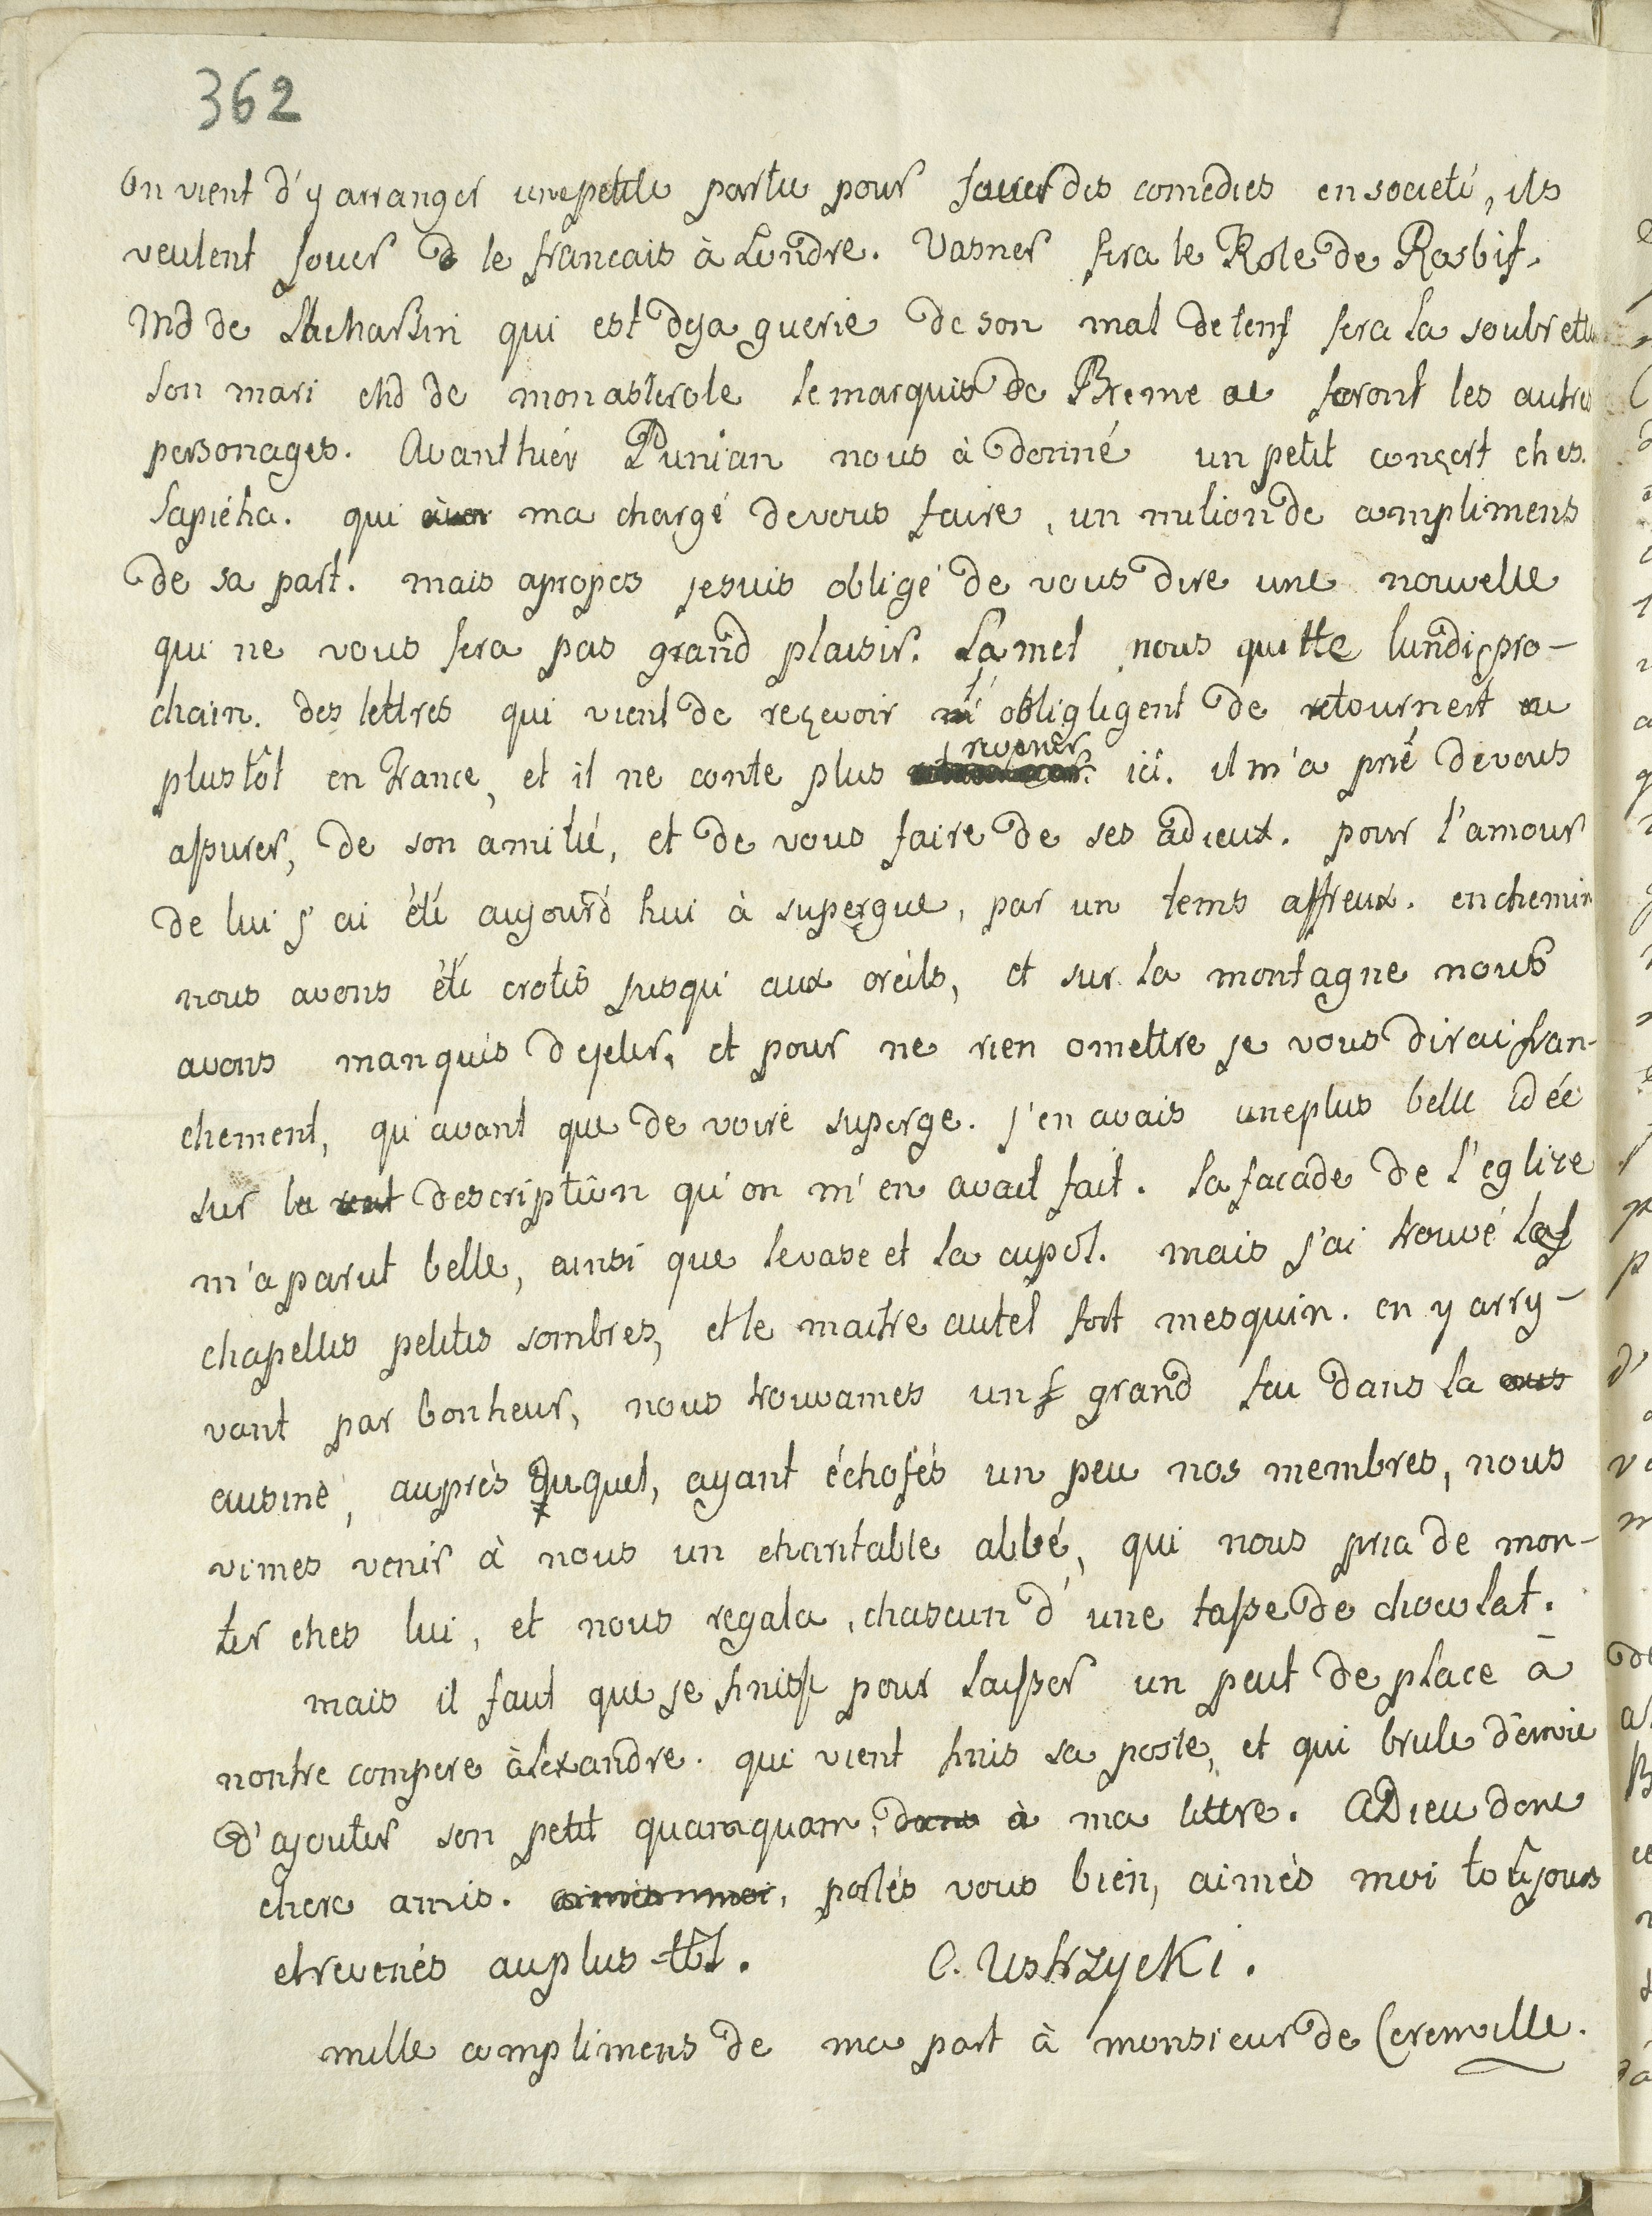 362
On vient d'y arranger une petite partie pour jouer des comedies en societé, ils
veulent jouer le francais à Londre. Vasner fera le Role de Rosbif.
Md de qui est deja guerie de son mal de fera la soubrette
son mari etMd de monasterole le marquis de Breme feront les autres
personages. Avant hiér Punian nous à donné un petit conçert ches.
Sapiéha. qui ma chargé de vous faire, un milion de complimens
de sa part. mais apropos jesuis obligé de vous dire une nouvelle
qui ne vous fera pas grand plaisir. Lamel nous quitte lundi pro-
chain. des lettres qui vient de reçevoir l' obligligent de retournert au
plustôt en France, et il ne conte plus revener ici. il m'a prié devous
assurer, de son amitié, et de vous faire de ses adieux. pour l'amour
de lui j'ai été aujourd'hui à supergue, par un tems affreux. en chemin
nous avons été crotés jusqu'aux oréils, et sur la montagne nous
avons manqués dejeler, et pour ne rien omettre je vous dirai fran-
chement, qu'avant que de voire superge. j'en avais une plus belle idée
sur la description qu'on m'en avait fait. la facade de l'eglize
m'a parut belle, ainsi que levase et la cupol. mais j'ai trouvé les
chapelles petites sombres, et le maitre autel fort mesquin. en y arry-
vant par bonheur, nous trouvames un grand feu dans la
cusine, auprès duquel, ayant échofés un peu nos membres, nous
vimes venir à nous un charitable abbé, qui nous pria de mon-
ter ches lui, et nous regala, chascun d'une tasse de chocolat.
mais il faut que je finiss pour laisser un peut de place à
nontre compere àlexandre. qui vient finis sa poste, et qui brule d'envie
d'ajouter son petit quamquam, dans à ma lettre. ADieu donc
chere amis. aimés moi, portés vous bien, aimés moi toujous
etrevenés auplus tôt. C. UstrzycKi.
mille complimens de ma part à monsieur de Cerenville.